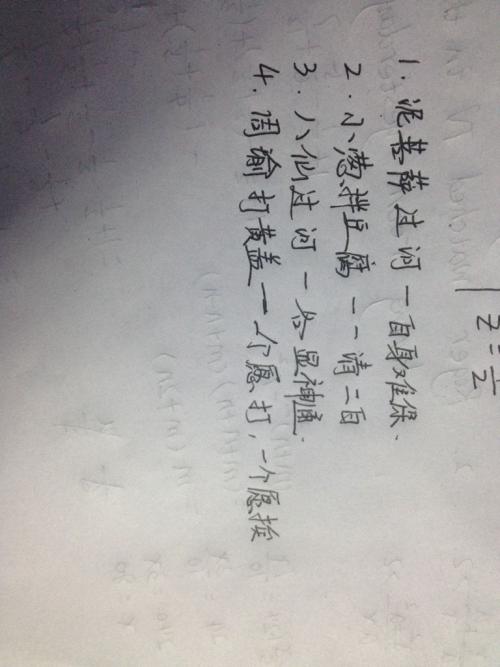 1. 泥菩萨过河一自身难保.
2. 小葱拌豆腐 一一清二白
3. 八仙过河 一各显神通.
4. 周瑜打黄盖一一个愿打,一个愿挨